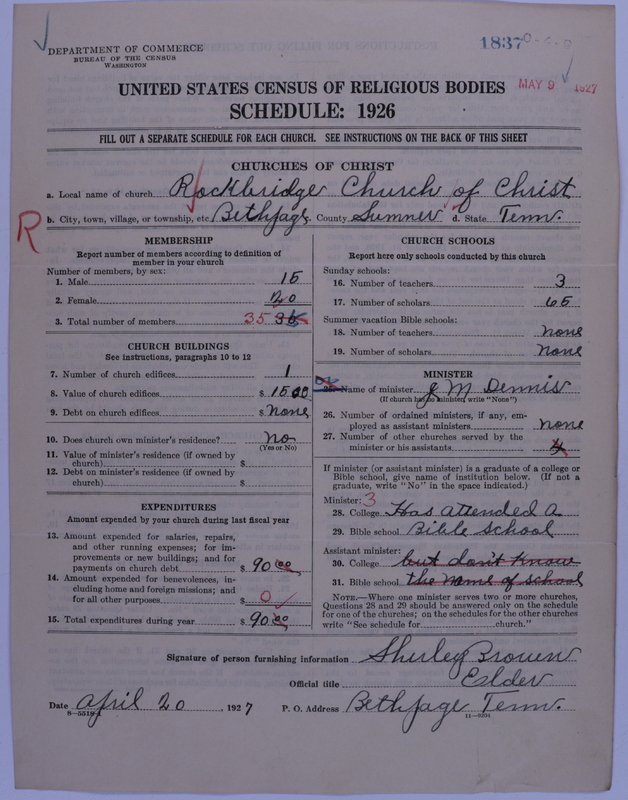 DEPARTMENT OF COMMERCE
BUREAU OF THE CENSUS
WASHINGTON
1837
MAY 9 1927
UNITED STATES CENSUS OF RELIGIOUS BODIES
SCHEDULE: 1926
FILL OUT A SEPARATE SCHEDULE FOR EACH CHURCH. SEE INSTRUCTIONS ON THE BACK OF THIS SHEET
CHURCHES OF CHRIST
a. Local name of church Rockbridge Church of Christ
R
b. City, town, village, or township, etc. Bethpage c. County Sumner d. State Tenn.
MEMBERSHIP
Report number of members according to definition of
member in your church
Number of members, by sex:
1. Male 15
2. Female 20
3. Total number of members 35 35
CHURCH BUILDINGS
See instructions, paragraphs 10 to 12
7. Number of church edifices 1
8. Value of church edifices $ 1500
9. Debt on church edifices $ none
10. Does church own minister's residence? no
(Yes or No)
11. Value of minister's residence (if owned by
church) $
12. Debt on minister's residence (if owned by
church) $
EXPENDITURES
Amount expended by your church during last fiscal year
13. Amount expended for salaries, repairs,
and other running expenses; for im-
provements or new buildings; and for
payments on church debt $ 90 00
14. Amount expended for benevolences, in-
cluding home and foreign missions; and
for all other purposes $ 0
15. Total expenditures during year $ 90 00
CHURCH SCHOOLS
Report here only schools conducted by this church
Sunday schools:
16. Number of teachers 3
17. Number of scholars 65
Summer vacation Bible schools:
18. Number of teachers none
19. Number of scholars none
MINISTER
25. Name of minister J M Dennis
(If church has no minister, write "None")
26. Number of ordained ministers, if any, em-
ployed as assistant ministers none
27. Number of other churches served by the
minister or his assistants 4
If minister (or assistant minister) is a graduate of a college or
Bible school, give name of institution below. (If not a
graduate, write "No" in the space indicated.)
Minister: 3
28. College Has attended a
29. Bible school Bible school
Assistant minister:
30. College but don't know
31. Bible school the name of school
NOTE.—Where one minister serves two or more churches,
Questions 28 and 29 should be answered only on the schedule
for one of the churches; on the schedules for the other churches
write "See schedule for church."
Signature of person furnishing information Shirley Brown
Official title Elder
Date April 20, 1927 P. O. Address Bethpage Tenn.
8—5518-A
11—9201